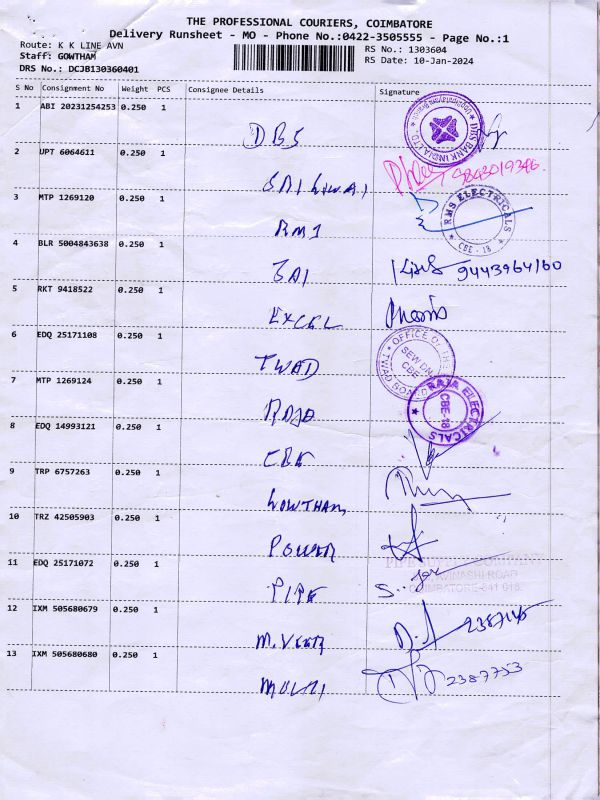 THE PROFESSIONAL COURIERS, COIMBATORE
Delivery Runsheet - MO - Phone No.:0422-3505555 - Page No.:1
Route: K K LINE AVN
RS No.: 1303604
Staff: GOWTHAM
RS Date: 10-Jan-2024
DRS No.: DCJB130360401
S No Consignment No Weight PCS Consignee Details Signature
1 ABI 20231254253 0.250 1
DBS
DBS BANK INDIA LTD.
2 UPT 6064611 0.250 1
SRI
3 MTP 1269120 0.250 1
RMS
RMS ELECTRICALS
CBE - 18
4 BLR 5004843638 0.250 1
SAI
9443964160
5 RKT 9418522 0.250 1
EXCEL
6 EDQ 25171108 0.250 1
TWAD
OFFICE OF THE
SEW DN.
CBE
TWAD BOARD
7 MTP 1269124 0.250 1
RAJA
RAJA ELECTRICALS
CBE-18
8 EDQ 14993121 0.250 1
CBE
9 TRP 6757263 0.250 1
GOWTHAM
10 TRZ 42505903 0.250 1
POWER
11 EDQ 25171072 0.250 1
PIPE
AVINASHI ROAD
COIMBATORE-641 018.
12 IXM 505680679 0.250 1
2387145
13 IXM 505680680 0.250 1
MULTI
2387753